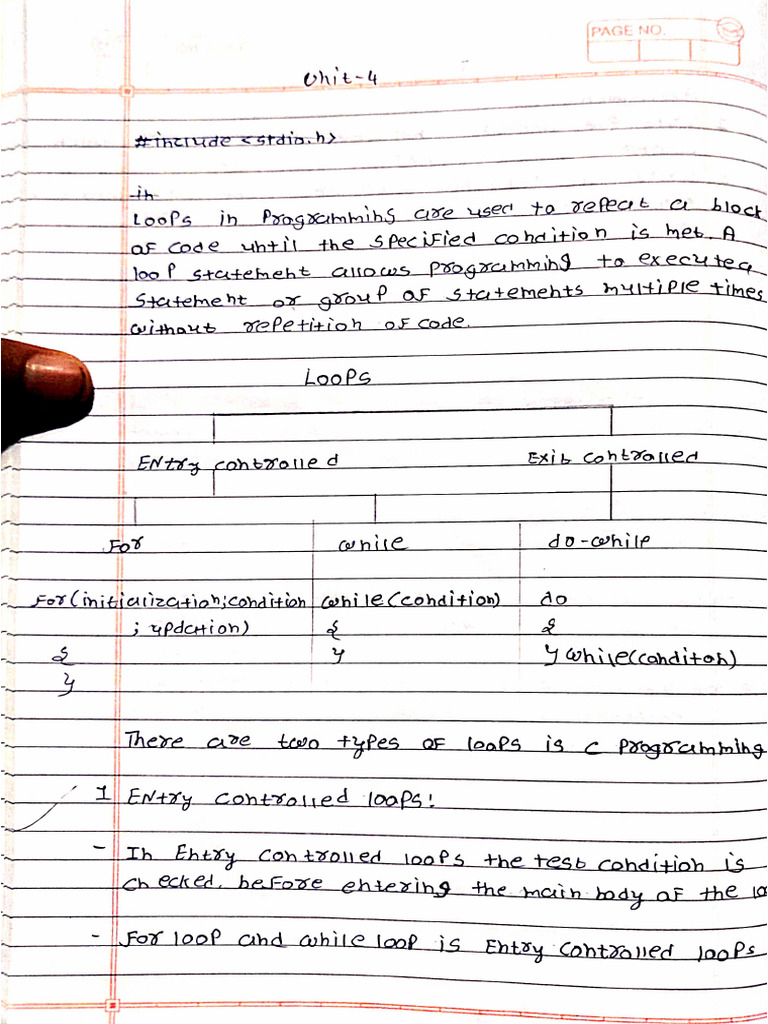 PAGE NO.
Unit-4
#include <stdio.h>
in
Loops in Programming are used to repeat a block
of code until the specified condition is met. A
loop statement allows programming to execute a
statement or group of statements multiple times
without repetition of code.
Loops
Entry controlled
Exit controlled
For
while
do-while
For(initialization;condition
; updation)
{
}
while(condition)
{
}
do
{
} while(conditon)
There are two types of loops is c programming
1 Entry controlled loops:
- In Entry controlled loops the test condition is
checked, before entering the main body of the lo
- For loop and while loop is Entry controlled loops